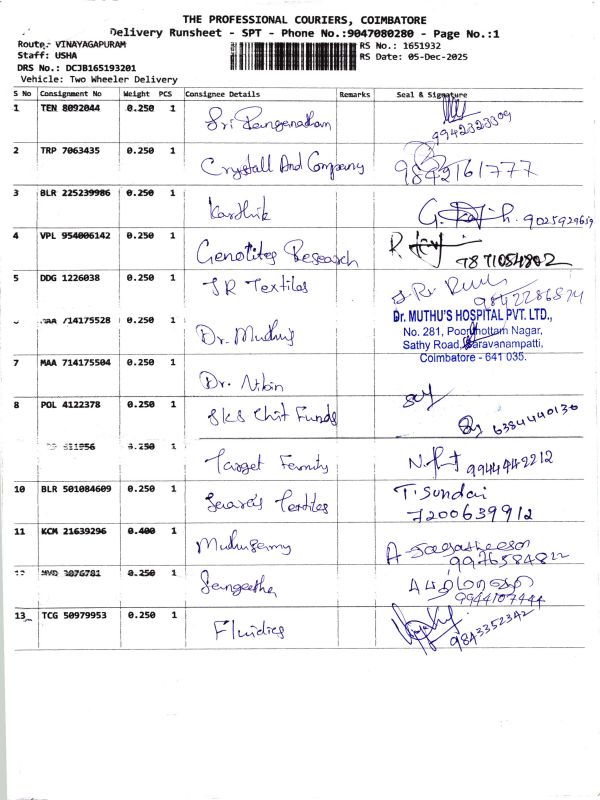 THE PROFESSIONAL COURIERS, COIMBATORE
Delivery Runsheet - SPT - Phone No.:9047080280 - Page No.:1
Route: VINAYAGAPURAM
RS No.: 1651932
Staff: USHA
RS Date: 05-Dec-2025
DRS No.: DCJB165193201
Vehicle: Two Wheeler Delivery
S No Consignment No Weight PCS Consignee Details Remarks Seal & Signature
1 TEN 8092044 0.250 1 Sri Ranganatham
9942323309
2 TRP 7063435 0.250 1 Crystall And Company 9842161777
3 BLR 225239986 0.250 1 Karthik 9025929659
4 VPL 954006142 0.250 1 Genotites Research
7871054802
5 DDG 1226038 0.250 1 JR Textiles
9842286874
714175528 0.250 1 Dr. Muthus
Dr. MUTHU'S HOSPITAL PVT. LTD.,
No. 281, Poonthottam Nagar,
Sathy Road, Saravanampatti,
Coimbatore - 641 035.
7 MAA 714175504 0.250 1 Dr. Nibin
8 POL 4122378 0.250 1 SKS Chit Funds
6384440136
0.250 1 Target 9944942212
10 BLR 501084609 0.250 1 Textiles T. Sundai
7200639912
11 KCM 21639296 0.400 1
12 3076781 0.250 1 Sangeetha
9944107444
13 TCG 50979953 0.250 1 Fluidics
9843352342